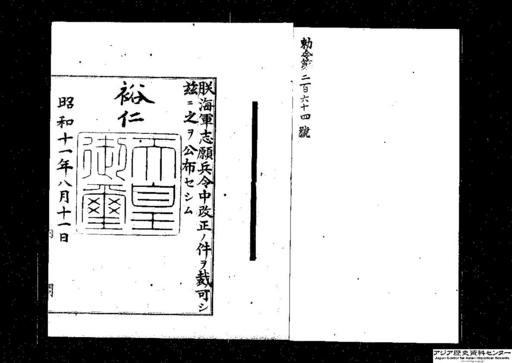 勅令第二百六十四號
朕海軍志願兵令中改正ノ件ヲ裁可シ
茲ニ之ヲ公布セシム
裕仁
天皇
御璽
昭和十一年八月十一日
アジア歴史資料センター
Japan Center for Asian Historical Records